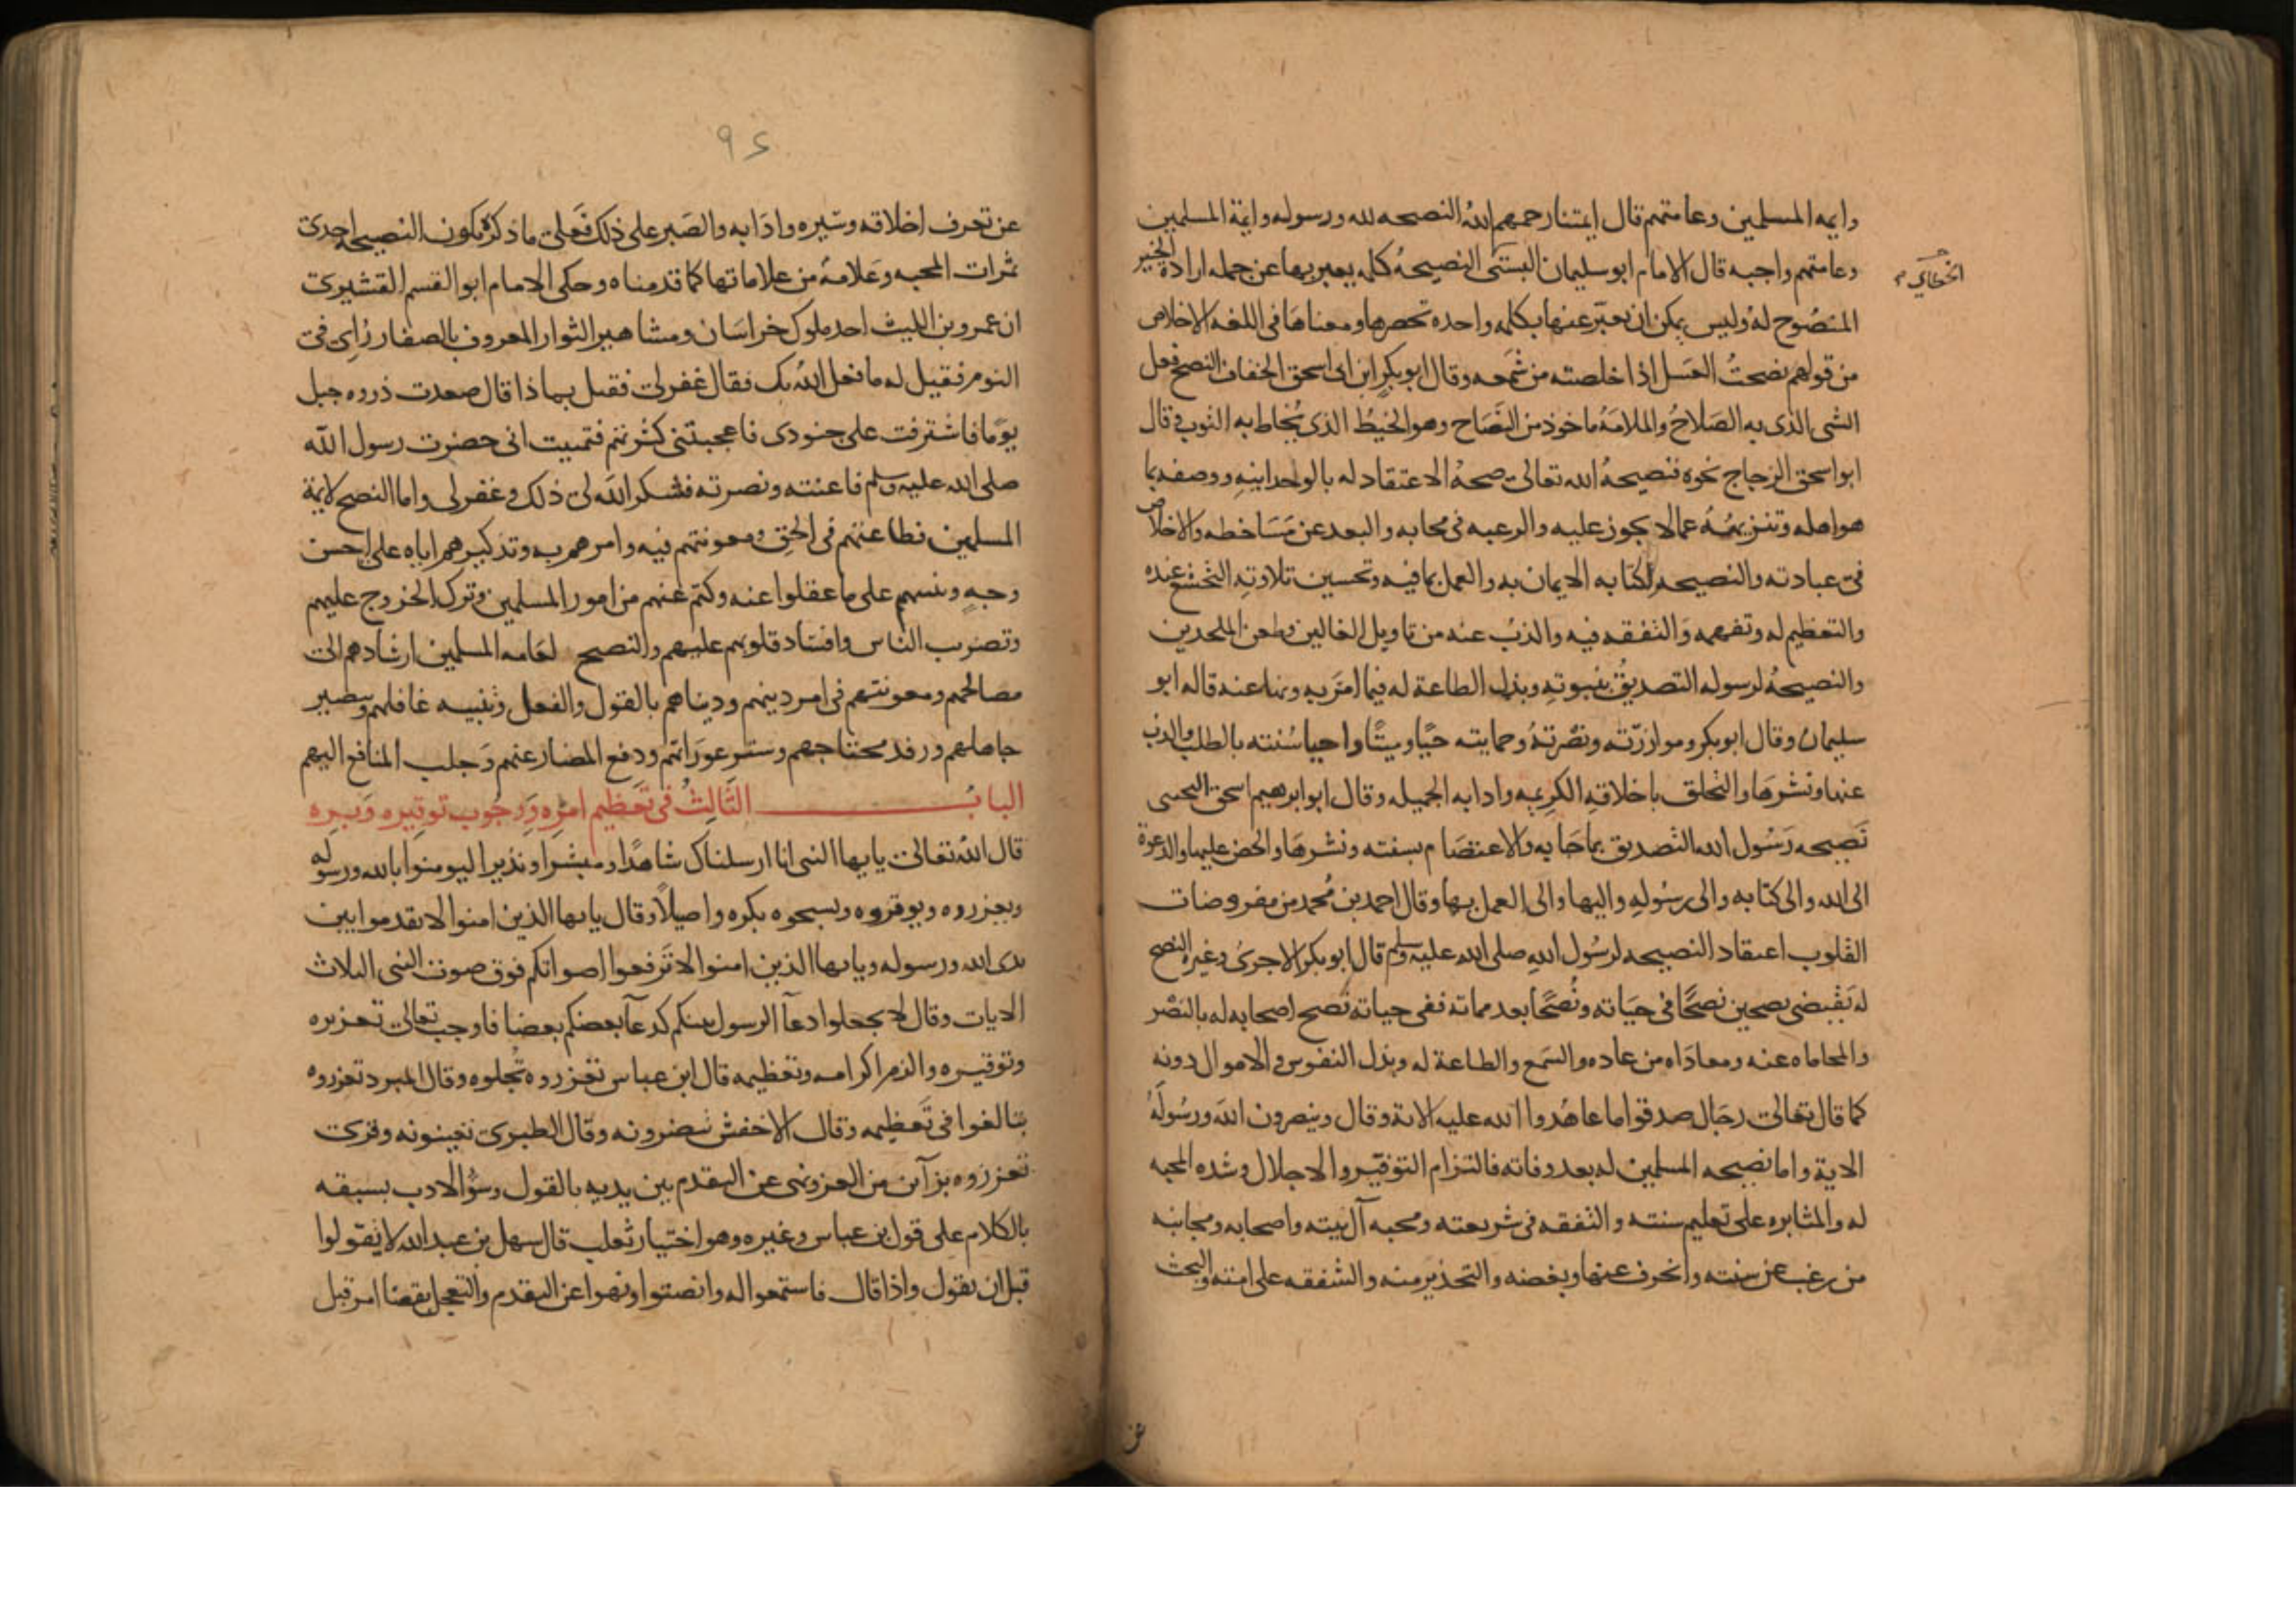 وايمه المسلمين وعامتهم قال ايمتنا رحمهم الله النصيحه لله ورسوله وايمة المسلمين
وعامتهم واجبه قال الامام ابو سليمان البستى النصيحهُ كلمه يعبر بها عن جمله ارادة الخير
الخطابي
المنصُوح لهُ وليس يمكن ان يعبّر عنها بكلمه واحده تحصرها ومعناهَا فى اللغه الاخلاص
من قولهم نصحتُ العَسل اذا خلصته من شمَعه وقال ابو بكرٍ ابن ابى اسحق الخفاف النصح فعل
الشى الذى به الصَلاحُ والملامَهُ ماخوذ من النِّصَاح وهو الخيُط الذى يُخاط به الثوب وقال
ابو اسحق الزجاج نحوه فنصيحهُ الله تعالى صحهُ الاعتقاد له بالواحدانيهِ ووصفه بما
هو اهله وتنزيههُ عما لا يجوز عليه والرعبه فى محابه والبعد عن مَسَاخطه والاخلاص
فى عبادته والنصيحه لكتابه الايمان به والعمل بما فيه وتحسين تلاوتهِ التخشع عنده
والتعظيم له وتفهمه وَالتفقه فيه والذبُ عنه من تاويل الغالين وطعن الملحدين
والنصيحهُ لرسوله التصديقُ بنبوتهِ وبذل الطاعة له فيما امَرَ به ونها عنه قاله ابو
سليمان وقال ابو بكر وموازرّته ونصْرتهُ وحمايته حيًا وميتًا واحيا سُنته بالطلب والذب
عنها ونشرهَا والتخلق باخلاقهِ الكريمه وادابه الجميله وقال ابو ابرهيم اسحق التجيبى
نَصِيحه رَسُول الله التصديق بماجَا به والاعتصَام بسنته ونشرهَا والحض عليها والدعوة
الى الله والى كتابه والى رسُولهِ واليها والى العمل بها وقال احمد بن مُحمد من مفروضات
القلوب اعتقاد النصيحه لرسُول اللهِ صلى الله عليه وسلم قال ابو بكر الاجرى وغيره النصح
له يَقْتضى نصحين نصحًا فى حيَاته ونُصحًا بعد مماته ففى حياته نُصح اصحابه له بالنَصْر
والمحاماه عنه ومعادَاه من عاده والسَمع والطاعة له وبذل النفوس والاموال دونه
كما قال تعالى رجَال صدقوا ما عاهَدوا الله عليه الاية وقال وينصرون الله ورسُولَهُ
الاية واما نصيحه المسلمين له بعد وفاته فالتزام التوقير والاجلال وشده المحبه
له والمثابره على تعليم سنته والتفقه فى شريعته ومحبه آل بيته واصحابه ومجانبه
من رغب عن سنته وانحرف عنها وبغضه والتحذير منه والشفقه على امته والبحث
عن
٩٤
عن تعرف اخلاقه وسَيره وادَابه والصَبر على ذلك فَعلى ما ذكرهُ يكون النصيحه احدى
ثمرات المحبه وعَلامهُ من علاماتها كما قدمناه وحكى الامام ابو القسم القشيرى
ان عمرو بن الليث احد ملوك خراسَان ومشاهير الثوار المعروف بالصفار رُاىِ فى
النوم فقيل له ما فعل اللهُ بك فقال غفر لى فقيل بماذا قال صعدت ذروه جبل
يوَمًا فاشترفت على جنودى فاعجبتنى كثرتهم فتمنيت انى حضرت رسول الله
صلى الله عليه وسلم فاعنته ونصرته فشكر اللهُ لى ذلك وغفر لى واما النصح لايمة
المسلمين فطاعنهم فى الحق ومعونتهم فيه وامرهم به وتذكيرهم اياه على احسن
وجهٍ وتنبيههم على ما عقلوا عنه وكتم عنهم من امور المسلمين وترك الخروج عليهم
وتضرب الناس وافساد قلوبهم عليهم والنصح لعَامه المسلمين ارشادهم الى
مصالحهم ومعونتهم فى امر دينهم ودنياهم بالقول والفعل وتنبيه غافلهم وتبصير
جاهلهم ورفد محتاجهم وستر عورَاتهم ودفع المضار عنهم وَجلب المنافع اليهم
البابُ الثَّالِثُ فى تَعظيم امرِه وَوجُوب توقيره وَبره
قال اللهُ تعالى يايها النبى انا ارسلناك شاهدًا ومبشرًا ونذيرا ليومنوا بالله ورسوله
ويعزروه ويوقروه ويسبحوه بكره واصيلاً وقال يايها الذين امنوا لا تقدموا بين
يدى الله ورسوله ويايها الذين امنوا لا ترَفعوا اصواتكم فوق صوت النبى الثلاث
الايات وقال لا تجعلوا دعآ الرسول بينكم كدعآ بعضكم بعضا فاوجب تعالى تعزيره
وتوقيره والزم اكرامه وتعظيمه قال ابن عباس تعزروه تُجلوه وقال المبرد تعزروه
تبالغوا فى تَعظيمه وقال الاخفش تنصرونه وقال الطبرى تعينونه وقرى
تعززوه بزآين من العز ونهى عن التقدم بين يديه بالقول وسُوء الادب بسبقه
بالكلام على قول بن عباس وغيره وهو اختيار ثعلب قال سهل بن عبد الله لا تقولوا
قبل ان يقول واذا قال فاستمعوا له وانصتوا ونهوا عن التقدم والتعجل بقضا امر قبل